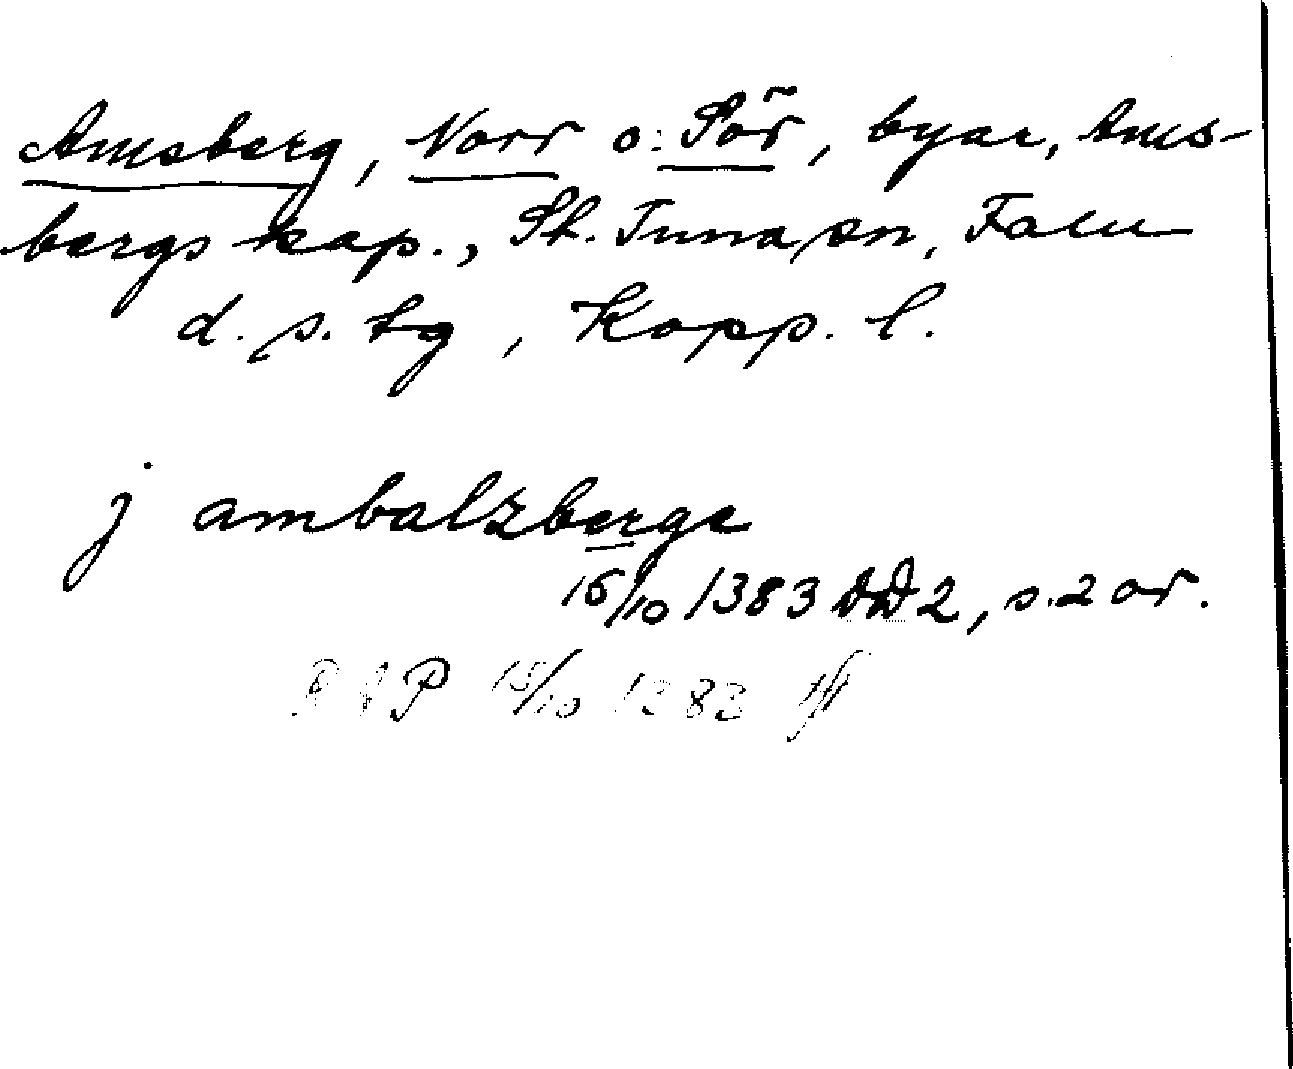 Amsberg, Norr o. Sör, byar, Ams-
bergs kap., St. Tuna sn, Falu
d. s. tg, Kopp. l.
j ambalzberge
15/10 1383 DD2, s. 2 or.
RAP 15/10 1383